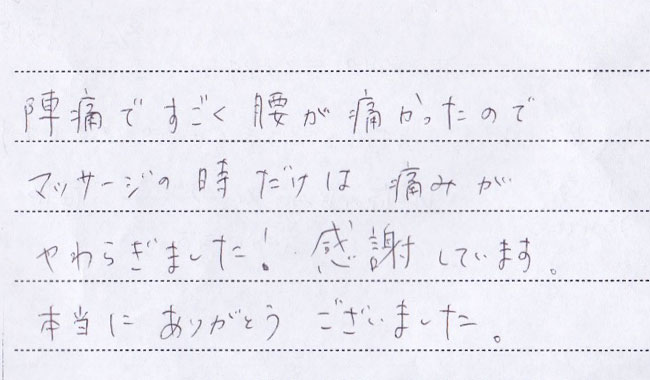 陣痛ですごく腰が痛かったので
マッサージの時だけは痛みが
やわらぎました！感謝しています。
本当にありがとうございました。